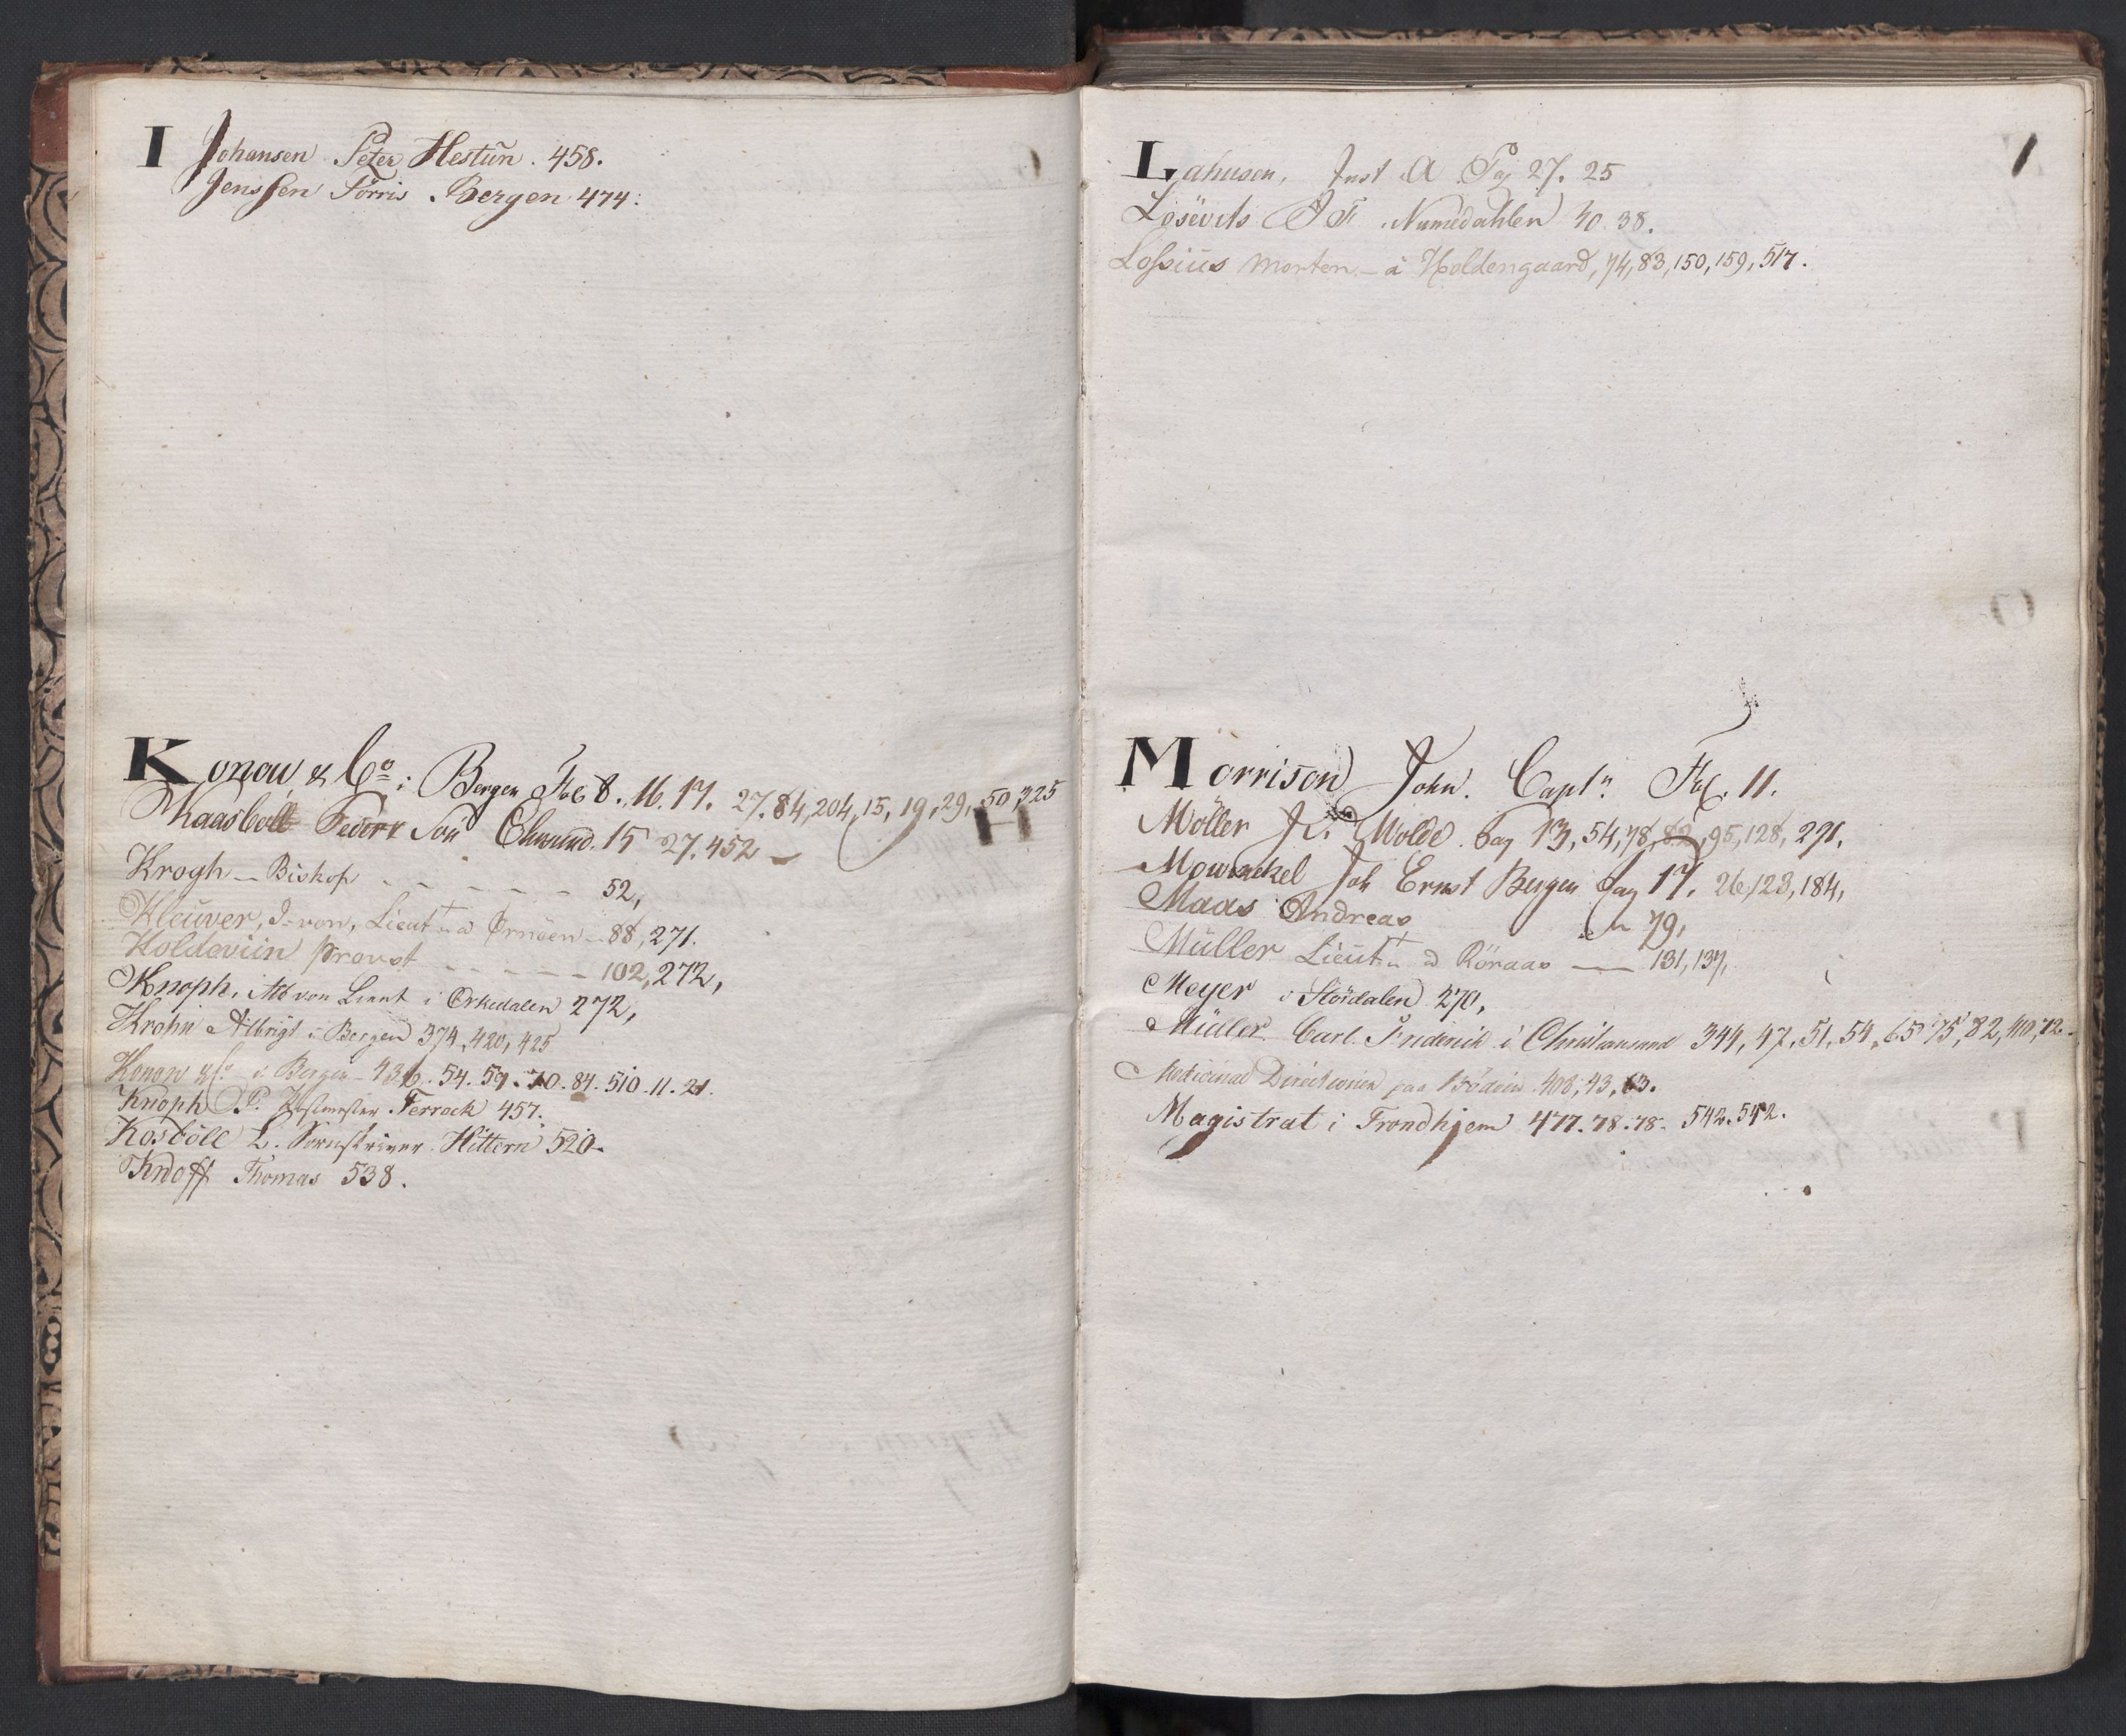 I Johansen Peter Hestun. 458.
Jenssen Törris. Bergen 474:
Konow & Co: Bergen Fol 8. 16. 17. 27. 84, 204, 15, 19, 29, 50, 325
Kaasboll Peder Edmund. 15 27. 452
Krogh - Biskop - - - - - - 52,
Kleüver, I. von, Lieutn. a Örnöen - 88, 271.
Koldeviin Provst - - - - - - 102, 272,
Knoph, von Lieut i Orkedalen 272,
Krohn Albrigt i Bergen 374, 420, 425
Konow & Co - i Bergen - 436. 54. 59. 70. 84. 510. 11. 21.
Knoph P. Ferrock 457.
Kosböll L. Sornskriver Hittern 520.
Knoff Thomas 538.
Lahusen, Just A Pag 27. 25
Lösevits J F. Numedahlen 30. 38.
Lossius Morten - a Holdengaard, 74, 83, 150, 159, 517.
Morrison John. Captn. Fol. 11.
Möller J. Molde. Pag 13, 54, 78, 82, 95, 128, 291.
Mowinckel Joh Ernst Bergen Pag 17. 26, 123, 184,
Maas Andreas 79,
Müller Lieutn a Röraas - 131, 137,
Meyer i Stördalen 270,
Müller Carl Friderich i Christiansund 344, 47, 51, 54, 65, 75, 82, 410, 72
Medicinal Directionen paa 408, 43, 63.
Magistrat i Trondhjem 477. 78. 78. 542. 542.